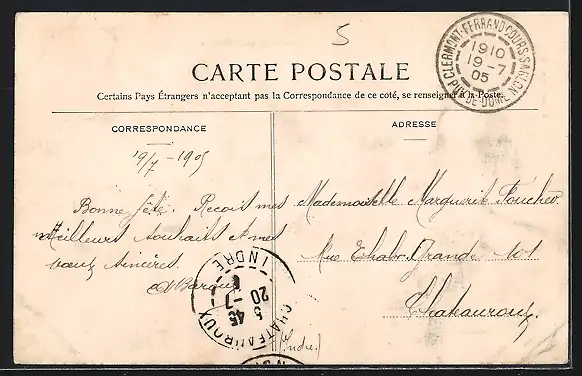 5
CLERMONT-FERRAND-COURS-SABLON
1910
19-7
05
PUY-DE-DOME
CARTE POSTALE
Certains Pays Étrangers n'acceptant pas la Correspondance de ce coté, se renseigner à la Poste.
CORRESPONDANCE
19/7-1905
Bonne fête. Recois mes
meilleurs souhaits et mes
vœux sincères.
ADRESSE
Mademoiselle Marguerite
Rue Grande 101
Chateauroux
(Indre.)
CHATEAUROUX
5 45
20 -7
INDRE